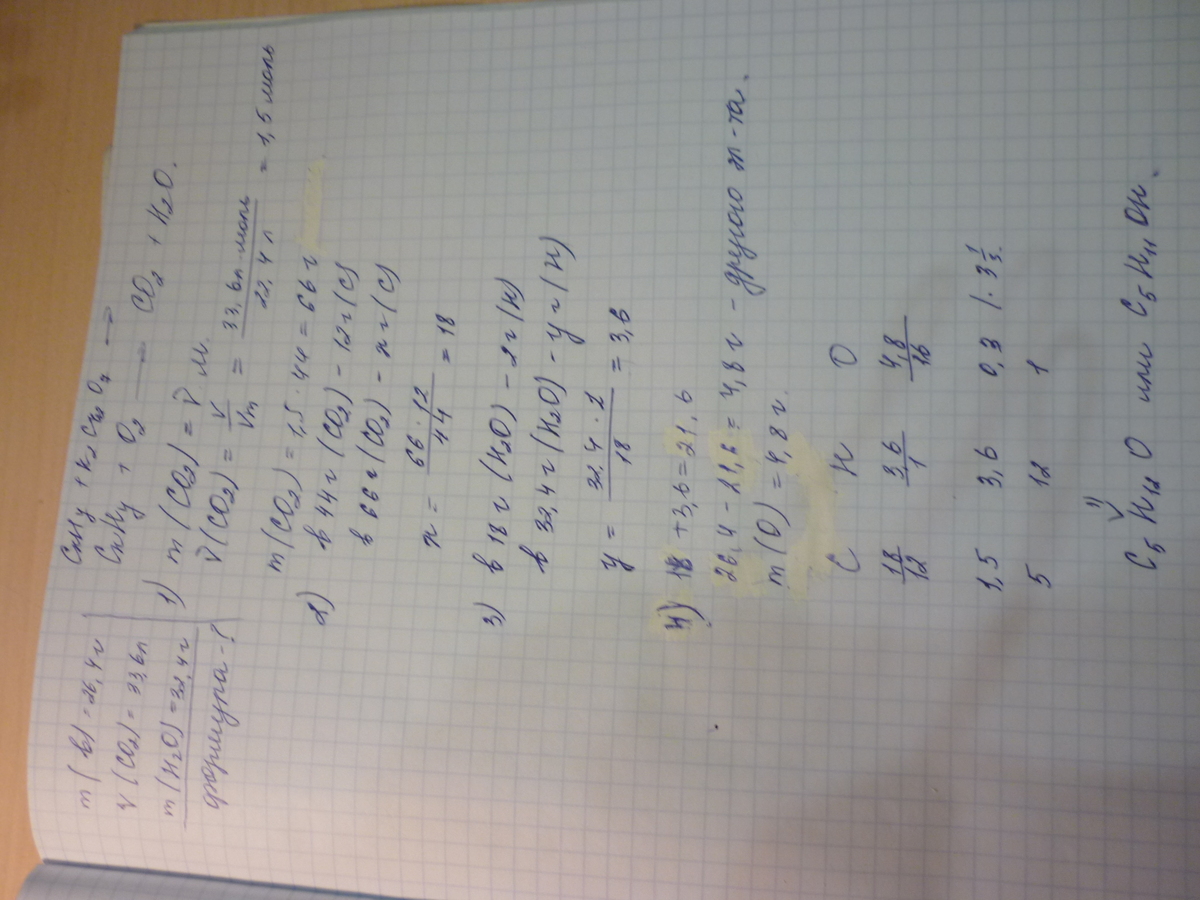 m(в) = 26,4 г
V(CO₂) = 33,6 л
m(H₂O) = 32,4 г
формула - ?
CxHy + K₂Cr₂O₇ →
CxHy + O₂ → CO₂ + H₂O.
1) m(CO₂) = ν̄ . M.
ν̄(CO₂) = V/Vm = 33,6 л · моль / 22,4 л = 1,5 моль
m(CO₂) = 1,5 · 44 = 66 г
2) в 44 г (CO₂) - 12 г (C)
в 66 г (CO₂) - x г (C)
x = 66 · 12 / 44 = 18
3) в 18 г (H₂O) - 2 г (H)
в 32,4 г (H₂O) - y г (H)
y = 32.4 · 2 / 18 = 3,6
4) 18 + 3,6 = 21,6
26,4 - 21,6 = 4,8 г - другого эл-та.
m(O) = 4,8 г.
C H O
18/12 3,6/1 4,8/16
1,5 3,6 0,3 / · 3 1/3.
5 12 1
C₅H₁₂O или C₅H₁₁OH.